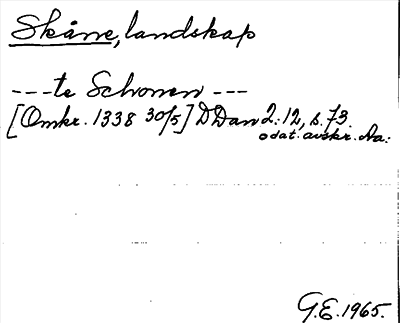 Skåne, landskap
---te Schonen---
[Omkr. 1338 30/5] DDan 2:12, s. 73.
odat. avskr. Aa:
G.E. 1965.